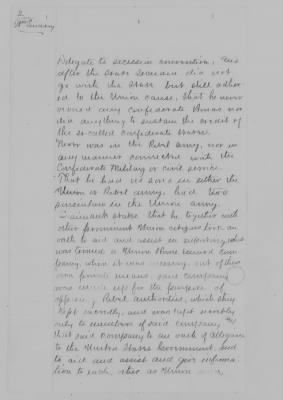 2
Delegate to secession convention, and
after the State seceded did not
go with the State but still adher
ed to the Union cause, that he never
owned any Confederate Bonds nor
did anything to sustain the credit of
the so-called Confederate States.
Never was in the Rebel army, nor in
any manner connected with the
Confederate Military or civil service.
That he had no sons in either the
Union or Rebel army, had two
in the Union army.
Claimant states that he, together with
other prominent Union citizens took an
oath to aid and assist in supporting what
was termed a Union Home Guard Com
pany, when it was necessary, out of their
own private means, said company
was made up for the purpose of
Rebel Authorities, which they
kept sacredly, and was kept
only to members of said company, and
that said company to an oath of allegiance
to the United States Government, and
to aid and assist and give informa
tion to each other as Union